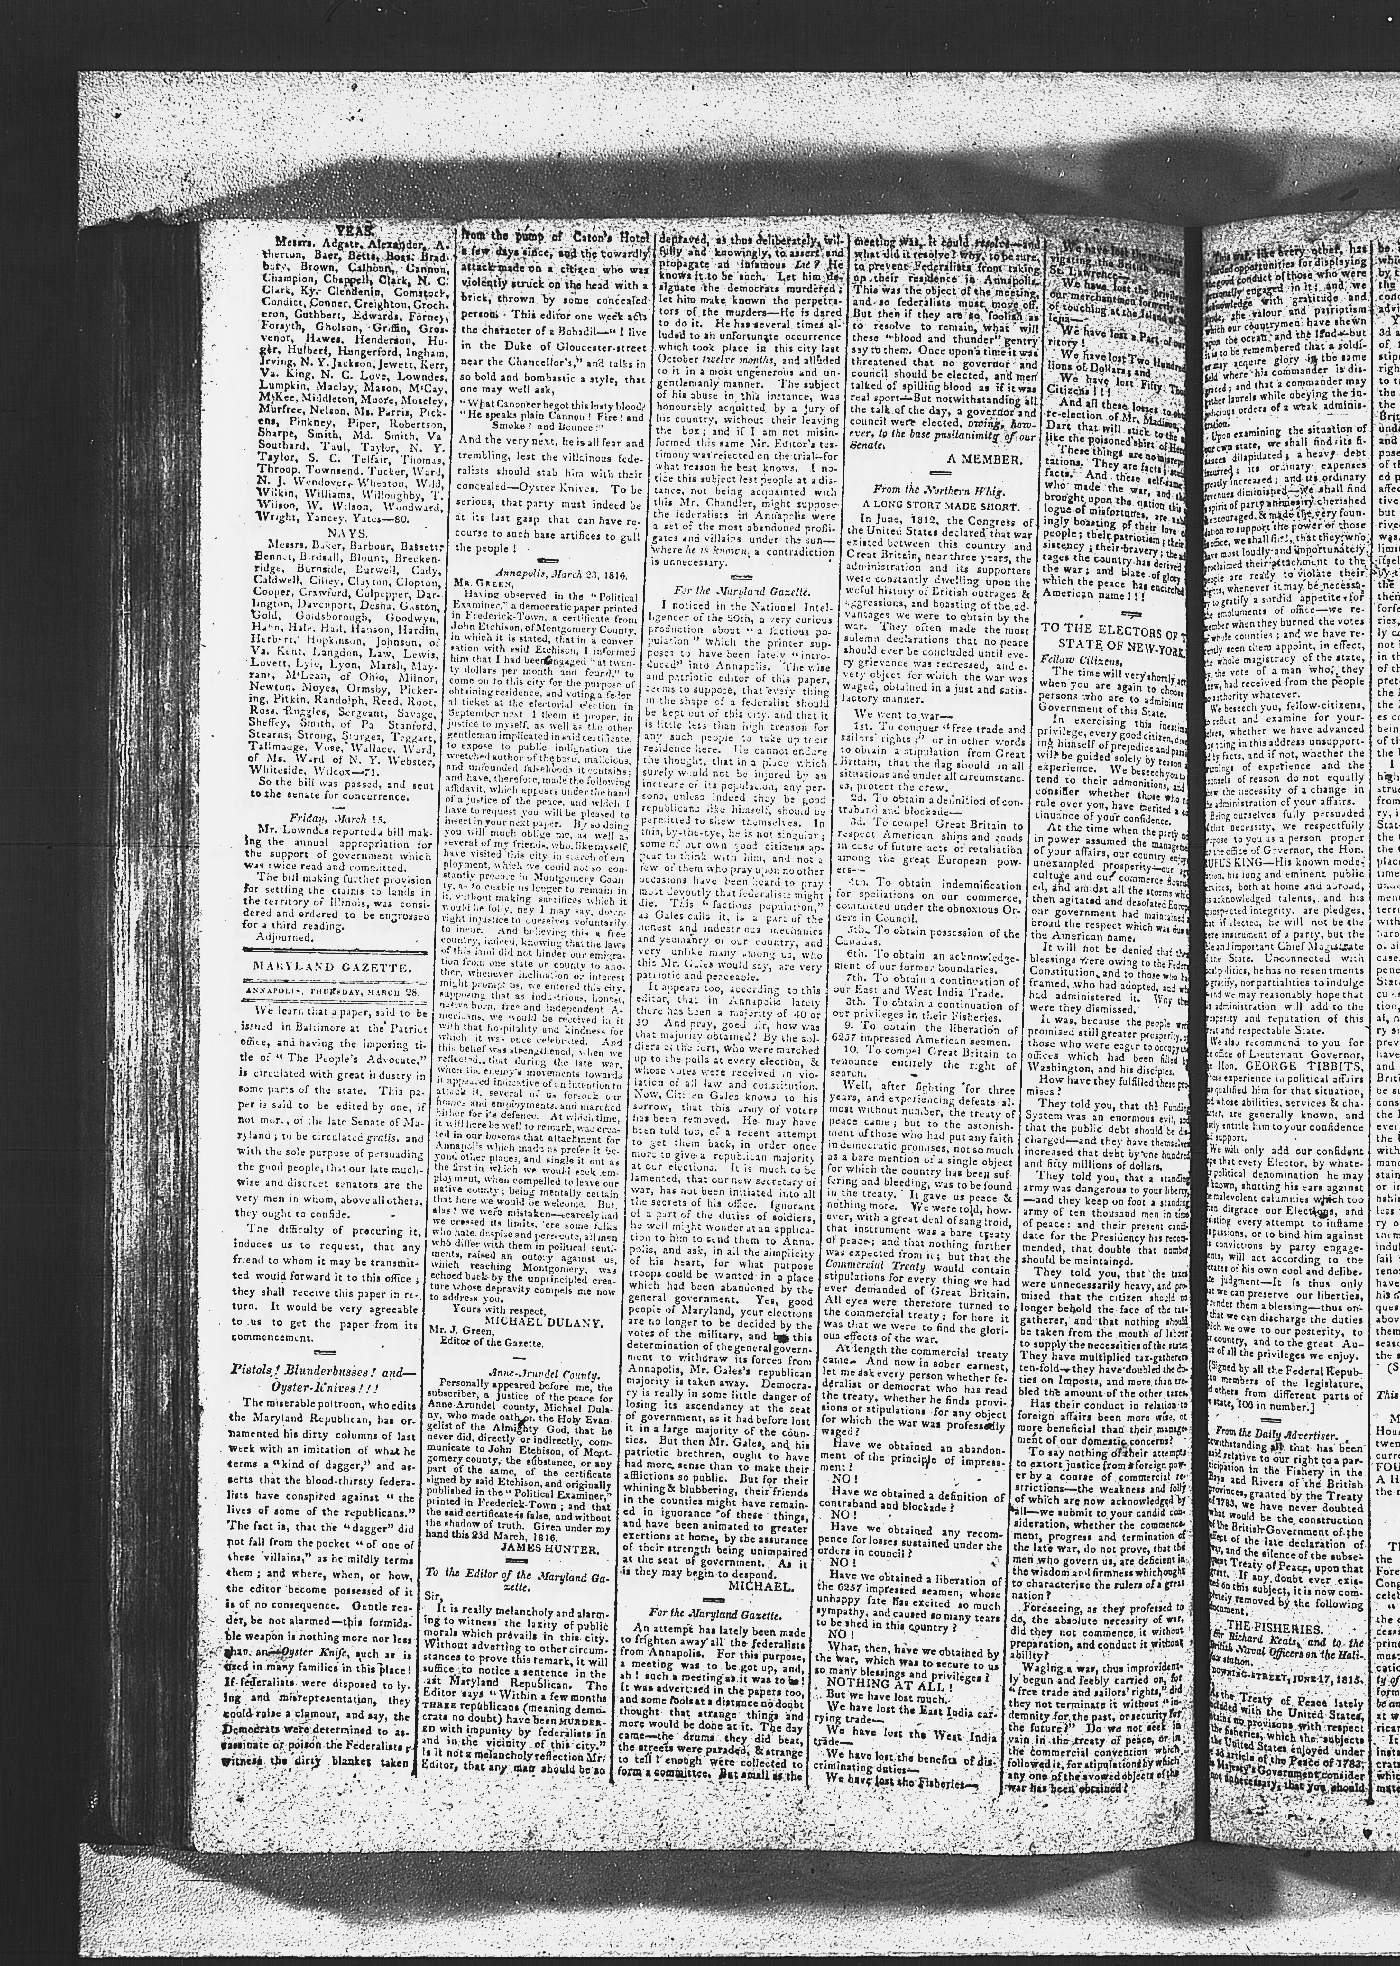 YEAS.
Messrs. Adgate, Alexander, A.
therton, Baer, Betts, Boss, Brad-
bury, Brown, Calhoun, Cannon,
Champion, Chappell, Clark, N. C.
Clark, Ky. Clendenin, Comstock,
Condict, Conner, Creighton, Croch-
eron, Cuthbert, Edwards, Forney,
Forsyth, Gholson, Griffin, Gros-
venor, Hawes, Henderson, Hu-
ger, Hulbert, Hungerford, Ingham,
Irving, N. Y. Jackson, Jewett, Kerr,
Va. King, N. C. Love, Lowndes,
Lumpkin, Maclay, Mason, M'Cay,
M'Kee, Middleton, Moore, Moseley,
Murfree, Nelson, Ms. Parris, Pick-
ens, Pinkney, Piper, Robertson,
Sharpe, Smith, Md. Smith, Va
Southard, Taul, Taylor, N. Y.
Taylor, S. C. Telfair, Thomas,
Throop, Townsend, Tucker, Ward,
N. J. Wendover, Wheaton, Wild,
Wilkin, Williams, Willoughby, T.
Wilson, W. Wilson, Woodward,
Wright, Yancey, Yates—80.
NAYS.
Messrs. Baker, Barbour, Bassett,
Bennet, Birdsall, Blount, Brecken-
ridge, Burnside, Burwell, Cady,
Caldwell, Cilley, Clayton, Clopton,
Cooper, Crawford, Culpepper, Dar-
lington, Davenport, Desha, Gaston,
Gold, Goldsborough, Goodwyn,
Hahn, Hale, Hall, Hanson, Hardin,
Herbert, Hopkinson, Johnson, of
Va. Kent, Langdon, Law, Lewis,
Lovett, Lyle, Lyon, Marsh, May-
rant, M'Lean, of Ohio, Milnor,
Newton, Noyes, Ormsby, Picker-
ing, Pitkin, Randolph, Reed, Root,
Ross, Ruggles, Sergeant, Savage,
Sheffey, Smith, of Pa Stanford,
Stearns, Strong, Sturges, Taggart,
Tallmauge, Vose, Wallace, Ward,
of Ms. Ward of N. Y. Webster,
Whiteside, Wilcox—71.
So the bill was passed, and sent
to the senate for concurrence.
Friday, March 15.
Mr. Lowndes reported a bill mak-
ing the annual appropriation for
the support of government which
was twice read and committed.
The bill making further provision
for settling the claims to lands in
the territory of Illinois, was consi-
dered and ordered to be engrossed
for a third reading.
Adjourned.
MARYLAND GAZETTE.
ANNAPOLIS, THURSDAY, MARCH 28.
We learn that a paper, said to be
issued in Baltimore at the Patriot
office, and having the imposing ti-
tle of "The People's Advocate,"
is circulated with great industry in
some parts of the state. This pa-
per is said to be edited by one, if
not more, of the late Senate of Ma-
ryland; to be circulated gratis, and
with the sole purpose of persuading
the good people, that our late much-
wise and discreet senators are the
very men in whom, above all others,
they ought to confide.
The difficulty of procuring it,
induces us to request, that any
friend to whom it may be transmit-
ted would forward it to this office;
they shall receive this paper in re-
turn. It would be very agreeable
to us to get the paper from its
commencement.
Pistols! Blunderbusses! and—
Oyster-Knives!!!
The miserable poltroon, who edits
the Maryland Republican, has or-
namented his dirty columns of last
week with an imitation of what he
terms a "kind of dagger," and as-
serts that the blood-thirsty federa-
lists have conspired against "the
lives of some of the republicans."
The fact is, that the "dagger" did
not fall from the pocket "of one of
these villains," as he mildly terms
them; and where, when, or how,
the editor become possessed of it
is of no consequence. Gentle rea-
der, be not alarmed—this formida-
ble weapon is nothing more nor less
than an—Oyster Knife, such as is
used in many families in this place!
If federalists were disposed to ly-
ing and misrepresentation, they
could raise a clamour, and say, the
Democrats were determined to as-
sassinate or poison the Federalists;
witness the dirty blanket taken
from the pump of Caton's Hotel
a few days since, and the cowardly
attack made on a citizen who was
violently struck on the head with a
brick, thrown by some concealed
person. This editor one week acts
the character of a Bobadil—"I live
in the Duke of Gloucester-street
near the Chancellor's," and talks in
so bold and bombastic a style, that
one may well ask,
"What Canoneer begot this lusty blood?
"He speaks plain Cannon! Fire! and
Smoke! and Bounce!"
And the very next, he is all fear and
trembling, lest the villainous fede-
ralists should stab him with their
concealed—Oyster Knives. To be
serious, that party must indeed be
at its last gasp that can have re-
course to such base artifices to gull
the people!
Annapolis, March 23, 1816.
Mr. Green,
Having observed in the "Political
Examiner," a democratic paper printed
in Frederick-Town, a certificate from
John Etchison, of Montgomery County,
in which it is stated, that in a conver
sation with said Etchison, I informed
him that I had been engaged "at twen-
ty dollars per month and found," to
come on to this city for the purpose of
obtaining residence, and voting a feder
al ticket at the electorial election in
September next I deem it proper, in
justice to myself, as well as the other
gentleman implicated in said certificate,
to expose to public indignation the
wretched author of the base, malicious,
and unfounded falsehoods it contains;
and have, therefore, made the following
affidavit, which appears under the hand
of a justice of the peace, and which I
have to request you will be pleased to
insert in your next paper. By so doing
you will much oblige me, as well as
several of my friends, who, like myself,
have visited this city in search of em
ployment, which we could not so con-
stantly procure in Montgomery Coun
ty, as to enable us longer to remain in
it, without making sacrifices which it
would be folly, nay I may say, down-
right injustice to ourselves voluntarily
to incur. And believing this a free
country, indeed, knowing that the laws
of this land did not hinder our emigra-
tion from one state or county to ano-
ther, whenever inclination or interest
might prompt us, we entered this city,
supposing that as industrious, honest,
native born, free and independent A-
mericans, we would be received in it
with that hospitality and kindness for
which it was once celebrated. And
this belief was strengthened, when we
reflected, that during the late war,
when the enemy's movements towards
it appeared indicative of an intention to
attack it, several of us forsook our
homes and employments, and marched
hither for its defence. At which time,
it will here be well to remark, was crea-
ted in our bosoms that attachment for
Annapolis which made us prefer it be-
yond other places, and single it out as
the first in which we would seek em-
ployment, when compelled to leave our
native county; being mentally certain
that here we would be welcome. But,
alas! we were mistaken—scarcely had
we crossed its limits, 'ere some folks
who hate, despise and persecute, all men
who differ with them in political senti-
ments, raised an outcry against us,
which reaching Montgomery, was
echoed back by the unprincipled crea-
ture whose depravity compels me now
to address you.
Yours with respect,
MICHAEL DULANY.
Mr. J. Green,
Editor of the Gazette.
Anne-Arundel County.
Personally appeared before me, the
subscriber, a justice of the peace for
Anne-Arundel county, Michael Dula-
ny, who made oath on the Holy Evan-
gelist of the Almighty God, that he
never did, directly or indirectly, com-
municate to John Etchison, of Mont-
gomery county, the substance, or any
part of the same, of the certificate
signed by said Etchison, and originally
published in the "Political Examiner,"
printed in Frederick-Town; and that
the said certificate is false, and without
the shadow of truth. Given under my
hand this 23d March, 1816.
JAMES HUNTER.
To the Editor of the Maryland Ga-
zette.
Sir,
It is really melancholy and alarm-
ing to witness the laxity of public
morals which prevails in this city.
Without adverting to other circum-
stances to prove this remark, it will
suffice to notice a sentence in the
last Maryland Republican. The
Editor says "Within a few months
THREE republicans (meaning demo-
crats no doubt) have been MURDER-
ED with impunity by federalists in
and in the vicinity of this city."
Is it not a melancholy reflection Mr.
Editor, that any man should be so
depraved, as thus deliberately, wil-
fully and knowingly, to assert and
propagate an infamous Lie? He
knows it to be such. Let him de-
signate the democrats murdered;
let him make known the perpetra-
tors of the murders—He is dared
to do it. He has several times al-
luded to an unfortunate occurrence
which took place in this city last
October twelve months, and alluded
to it in a most ungenerous and un-
gentlemanly manner. The subject
of his abuse in this instance, was
honourably acquitted by a jury of
his country, without their leaving
the box; and if I am not misin-
formed this same Mr. Editor's tes-
timony was rejected on the trial—for
what reason he best knows. I no-
tice this subject lest people at a dis-
tance, not being acquainted with
this Mr. Chandler, might suppose
the federalists in Annapolis were
a set of the most abandoned profli-
gates and villains under the sun—
where he is known, a contradiction
is unnecessary.
For the Maryland Gazette.
I noticed in the National Intel-
ligencer of the 20th, a very curious
production about "a factious po-
pulation" which the printer sup-
poses to have been lately "intro-
duced" into Annapolis. The wise
and patriotic editor of this paper,
seems to suppose, that every thing
in the shape of a federalist should
be kept out of this city, and that it
is little less than high treason for
any such people to take up their
residence here. He cannot endure
the thought, that in a place which
surely would not be injured by an
increase of its population, any per-
sons, unless indeed they be good
republicans like himself, should be
permitted to shew themselves. In
this, by-the-bye, he is not singular;
some of our own good citizens ap-
pear to think with him, and not a
few of them who pray upon no other
occasions have been heard to pray
most devoutly that federalists might
die. This "factious population,"
as Gales calls it, is a part of the
honest and industrious mechanics
and yeomanry of our country, and
very unlike many among us, who
like Mr. Gales would say, are very
patriotic and peaceable.
It appears too, according to this
editor, that in Annapolis lately
there has been a majority of 40 or
50 And pray, good sir, how was
that majority obtained? By the sol-
diers at the fort, who were marched
up to the polls at every election, &
whose votes were received in vio-
lation of all law and constitution.
Now, Citizen Gales knows to his
sorrow, that this army of voters
has been removed. He may have
been told too, of a recent attempt
to get them back, in order once
more to give a republican majority
at our elections. It is much to be
lamented, that our new secretary of
war, has not been initiated into all
the secrets of his office. Ignorant
of a part of the duties of soldiers,
he well might wonder at an applica-
tion to him to send them to Anna-
polis, and ask, in all the simplicity
of his heart, for what purpose
troops could be wanted in a place
which had been abandoned by the
general government. Yes, good
people of Maryland, your elections
are no longer to be decided by the
votes of the military, and by this
determination of the general govern-
ment to withdraw its forces from
Annapolis, Mr. Gales's republican
majority is taken away. Democra-
cy is really in some little danger of
losing its ascendancy at the seat
of government, as it had before lost
it in a large majority of the coun-
ties. But then Mr. Gales, and his
patriotic brethren, ought to have
had more sense than to make their
afflictions so public. But for their
whining & blubbering, their friends
in the counties might have remain-
ed in ignorance of these things,
and have been animated to greater
exertions at home, by the assurance
of their strength being unimpaired
at the seat of government. As it
is they may begin to despond.
MICHAEL.
For the Maryland Gazette.
An attempt has lately been made
to frighten away all the federalists
from Annapolis. For this purpose,
a meeting was to be got up, and,
ah! such a meeting as it was to be!
It was advertised in the papers too,
and some fools at a distance no doubt
thought that strange things and
more would be done at it. The day
came—the drums they did beat,
the streets were paraded, & strange
to tell! enough were collected to
form a committee. But small as the
meeting was, it could resolve—and
what did it resolve? Why, to be sure,
to prevent Federalists from taking
up their residence in Annapolis.
This was the object of the meeting,
and so federalists must move off.
But then if they are so foolish as
to resolve to remain, what will
these "blood and thunder" gentry
say to them. Once upon a time it was
threatened that no governor and
council should be elected, and men
talked of spilling blood as if it was
real sport—But notwithstanding all
the talk of the day, a governor and
council were elected, owing, how-
ever, to the base pusilanimity of our
Senate.
A MEMBER.
From the Northern Whig.
A LONG STORY MADE SHORT.
In June, 1812, the Congress of
the United States declared that war
existed between this country and
Great Britain, near three years, the
administration and its supporters
were constantly dwelling upon the
woful history of British outrages &
aggressions, and boasting of the ad-
vantages we were to obtain by the
war. They often made the most
solemn declarations that no peace
should ever be concluded until eve-
ry grievance was redressed, and e-
very object for which the war was
waged, obtained in a just and satis-
factory manner.
We went to war—
1st. To conquer "Free trade and
sailors' rights;" or in other words
to obtain a stipulation from Great
Britain, that the flag should in all
situations and under all circumstanc-
es, protect the crew.
2d. To obtain a definition of con-
traband and blockade—
3d. To compel Great Britain to
respect American ships and goods
in case of future acts of retaliation
among the great European pow-
ers—
4th. To obtain indemnification
for spoliations on our commerce,
committed under the obnoxious Or-
ders in Council.
5th. To obtain possession of the
Canadas.
6th. To obtain an acknowledge-
ment of our former boundaries.
7th. To obtain a continuation of
our East and West India Trade.
8th. To obtain a continuation of
our privileges in their Fisheries.
9. To obtain the liberation of
6257 impressed American seamen.
10. To compel Great Britain to
renounce entirely the right of
search.
Well, after fighting for three
years, and experiencing defeats al-
most without number, the treaty of
peace came; but to the astonish-
ment of those who had put any faith
in democratic promises, not so much
as a bare mention of a single object
for which the country has been suf
fering and bleeding, was to be found
in the treaty. It gave us peace &
nothing more. We were told, how-
ever, with a great deal of sang froid,
that instrument was a bare treaty
of peace; and that nothing further
was expected from it; but that the
Commercial Treaty would contain
stipulations for every thing we had
ever demanded of Great Britain.
All eyes were therefore turned to
the commercial treaty; for here it
was that we were to find the glori-
ous effects of the war.
At length the commercial treaty
came. And now in sober earnest,
let me ask every person whether fe-
deralist or democrat who has read
the treaty, whether he finds provi-
sions or stipulations for any object
for which the war was professedly
waged?
Have we obtained an abandon-
ment of the principle of impress-
ment?
NO!
Have we obtained a definition of
contraband and blockade?
NO!
Have we obtained any recom-
pence for losses sustained under the
orders in council?
NO!
Have we obtained a liberation of
the 6257 impressed seamen, whose
unhappy fate has excited so much
sympathy, and caused so many tears
to be shed in this country?
NO!
What, then, have we obtained by
the war, which was to secure to us
so many blessings and privileges?
NOTHING AT ALL!
But we have lost much.
We have lost the East India car-
rying trade—
We have lost the West India
trade—
We have lost the benefits of dis-
criminating duties—
We have lost the Fisheries—
We have lost the
vigating the British
St. Lawrence—
We have lost the privilege
our merchantmen formerly
of touching at the Island of
We have lost a Part of our
ritory!
We have lost Two Hundred
lions of Dollars; and
We have lost Fifty Thou
Citizens!!!
And all these losses to
re-election of Mr. Madison,
Dart that will stick to the
like the poisoned shirt of
These things are no misrep
tations. They are facts; stub
facts. And these self-same
who made the war, and
brought upon the nation this
logue of misfortunes, are
ingly boasting of their love of
people; their patriotism; their
sistency; their bravery; the
tages the country has derived
the war; and blaze of glory
which the peace has encircled
American name!!!
TO THE ELECTORS OF T
STATE OF NEW-YORK.
Fellow Citizens,
The time will very shortly arr
when you are again to choose
persons who are to administer
Government of this State.
In exercising this inestim
privilege, every good citizen, di
ing himself of prejudice and passi
will be guided solely by reason
experience. We beseech you to
tend to their admonitions, and
consider whether those who
rule over you, have merited a
tinuance of your confidence.
At the time when the party no
in power assumed the managem
of your affairs, our country enjoy
unexampled prosperity—our ag
culture and our commerce flouri
ed, and amidst all the storms whi
then agitated and desolated Europ
our government had maintained
broad the respect which was due
the American name.
It will not be denied that the
blessings were owing to the Feder
Constitution, and to those who h
framed, who had adopted, and wh
had administered it. Why the
were they dismissed.
It was, because the people we
promised still greater prosperity, b
those who were eager to occupy th
offices which had been filled b
Washington, and his disciples.
How have they fulfilled these pro-
mises?
They told you, that the Funding
System was an enormous evil, and
that the public debt should be dis-
charged—and they have themselves
increased that debt by one hundred
and fifty millions of dollars.
They told you, that a standing
army was dangerous to your liberty,
—and they keep on foot a standing
army of ten thousand men in time
of peace: and their present candi-
date for the Presidency has recom-
mended, that double that number
should be maintained.
They told you, that the taxes
were unnecessarily heavy, and pro-
mised that the citizen should no
longer behold the face of the tax-
gatherer, and that nothing should
be taken from the mouth of labour
to supply the necessities of the state.
They have multiplied tax-gatherers
ten-fold—they have doubled the du-
ties on Imposts, and more than tre-
bled the amount of the other taxes.
Has their conduct in relation to
foreign affairs been more wise, or
more beneficial than their manage-
ment of our domestic concerns?
To say nothing of their attempts
to extort justice from a foreign pow-
er by a course of commercial re-
strictions—the weakness and folly
of which are now acknowledged by
all—we submit to your candid con-
sideration, whether the commence-
ment, progress and termination of
the late war, do not prove, that the
men who govern us, are deficient in
the wisdom and firmness which ought
to characterise the rulers of a great
nation?
Foreseeing, as they professed to
do, the absolute necessity of war,
did they not commence it without
preparation, and conduct it without
ability?
Waging a war, thus improvident-
ly begun and feebly carried on, for
"free trade and sailors' rights," did
they not terminate it without "in-
demnity for the past, or security for
the future?" Do we not seek in
vain in the treaty of peace, or in
the commercial convention which
followed it, for stipulations by which
any one of the avowed objects of the
war has been obtained?
This war, like every other, has
afforded opportunities for displaying
the good conduct of those who were
personally engaged in it; and, we
acknowledge with gratitude and
the valour and patriotism
which our countrymen have shewn
upon the ocean and the land—but
it is to be remembered that a soldi-
may acquire glory in the same
field where his commander is dis-
graced; and that a commander may
gather laurels while obeying the in-
judicious orders of a weak adminis-
tration.
Upon examining the situation of
our own state, we shall find its fi-
nances dilapidated; a heavy debt
incurred; its ordinary expenses
and its ordinary
revenues diminished—we shall find
spirit of party animosity cherished
encouraged, & made the very foun-
dation to support the power of those
office, we shall find, that they, who
have most loudly and importunately
proclaimed their attachment to the
people are ready to violate their
rights, whenever it may be necessa-
to gratify a sordid appetite for
emoluments of office—we re-
member when they burned the votes
whole counties; and we have re-
cently seen them appoint, in effect,
the whole magistracy of the state,
by the vote of a man who, they
knew, had received from the people
no authority whatever.
We beseech you, fellow-citizens,
to reflect and examine for your-
selves, whether we have advanced
any thing in this address unsupport-
ed by facts, and if not, whether the
teachings of experience and the
counsels of reason do not equally
shew the necessity of a change in
the administration of your affairs.
Being ourselves fully persuaded
of that necessity, we respectfully
propose to you as a proper person
for the office of Governor, the Hon.
RUFUS KING—His known mode-
ration, his long and eminent public
services, both at home and abroad,
his acknowledged talents, and his
unsuspected integrity, are pledges,
that if elected, he will not be the
mere instrument of a party, but the
able and important Chief Magistrate
of the State. Unconnected with
politics, he has no resentments
to gratify, nor partialities to indulge
and we may reasonably hope that
his administration will add to the
prosperity and reputation of this
great and respectable State.
We also recommend to you for
the office of Lieutenant Governor,
the Hon. GEORGE TIBBITS,
whose experience in political affairs
qualified him for that situation,
and whose abilities, services & cha-
racter, are generally known, and
justly entitle him to your confidence
and support.
We will only add our confident
hope that every Elector, by whate-
ver political denomination he may
be known, shutting his ears against
the malevolent calumnies which too
often disgrace our Elections, and
resisting every attempt to inflame
his passions, or to bind him against
his convictions by party engage-
ments, will act according to the
dictates of his own cool and delibe-
rate judgment—It is thus only
that we can preserve our liberties,
and render them a blessing—thus on-
ly that we can discharge the duties
which we owe to our posterity, to
our country, and to the great Au-
thor of all the privileges we enjoy.
[Signed by all the Federal Repub-
lican members of the legislature,
and others from different parts of
the state, 100 in number.]
From the Daily Advertiser.
Notwithstanding all that has been
said relative to our right to a par-
ticipation in the Fishery in the
Bays and Rivers of the British
Provinces, granted by the Treaty
of 1783, we have never doubted
what would be the construction
of the British Government of the
effect of the late declaration of
war, and the silence of the subse-
quent Treaty of Peace, upon that
right. If any doubt ever exis-
ted on this subject, it is now com-
pletely removed by the following
document.
THE FISHERIES.
Sir Richard Keats, and to the
British Naval Officers on the Hali-
fax station.
DOWNING-STREET, JUNE 17, 1815.
As the Treaty of Peace lately
concluded with the United States,
contains no provisions with respect
to the fisheries, which the subjects
of the United States enjoyed under
the 3d article of the Peace of 1783,
his Majesty's Government consider
it not unnecessary, that you should